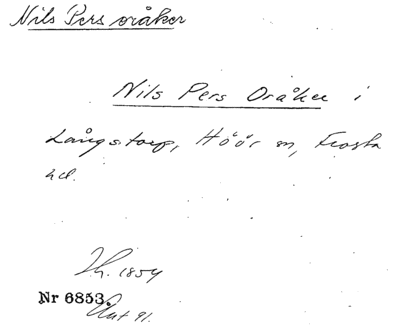 Nils Pers oråker
Nils Pers Oråker i
Långstorp, Höör sn, Frosta
hd.
Th. 1854
Nr 6853.
Ant 91.